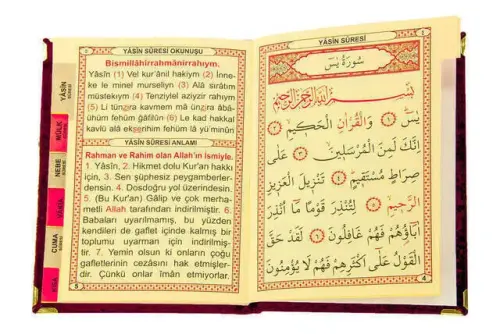 YÂSÎN SÛRESİ OKUNUŞU
Bismillâhirrahmânirrahıym.
Yâsîn (1) Vel kur'ânil hakiym (2) İnne-
ke le minel murseliyn (3) Alâ sırâtım
müstekıym (4) Tenziylel aziyzir rahiym
(5) Li tünzira kavmem mâ ünzira âbâ-
ühüm fehüm ğâfilûn (6) Le kad hakkal
kavlü alâ ekserihim fehüm lâ yü'minûn
YÂSÎN SÛRESİ ANLAMI
Rahman ve Rahim olan Allah'ın ismiyle.
1. Yâsîn, 2. Hikmet dolu Kur'an hakkı
için, 3. Sen şüphesiz peygamberler-
densin. 4. Dosdoğru yol üzerindesin.
5. (Bu Kur'an) Gâlip ve çok merha-
metli Allah tarafından indirilmiştir. 6.
Babaları uyarılmamış, bu yüzden
kendileri de gaflet içinde kalmış bir
toplumu uyarman için indirilmiş-
tir. 7. Yemin olsun ki onların çoğu
gafletlerinin cezasını hak etmişler-
dir. Çünkü onlar iman etmiyorlar.
5
YÂSÎN
SÛRESİ
MÜLK
NEBE
VAKIA
CUMA
KISA
YÂSÎN SÛRESİ
1
سُورَةُ يٰسٓ
بِسْمِ اللّٰهِ الرَّحْمٰنِ الرَّحِيمِ
يٰسٓ ﴿١﴾ وَالْقُرْاٰنِ الْحَكِيمِ ﴿٢﴾
اِنَّكَ لَمِنَ الْمُرْسَلِينَ ﴿٣﴾ عَلٰى
صِرَاطٍ مُسْتَقِيمٍ ﴿٤﴾ تَنْزِيلَ الْعَزِيزِ
الرَّحِيمِ ﴿٥﴾ لِتُنْذِرَ قَوْمًا مَٓا اُنْذِرَ
اٰبَٓاؤُ۬هُمْ فَهُمْ غَافِلُونَ ﴿٦﴾ لَقَدْ حَقَّ
الْقَوْلُ عَلٰٓى اَكْثَرِهِمْ فَهُمْ لَا يُؤْمِنُونَ
4